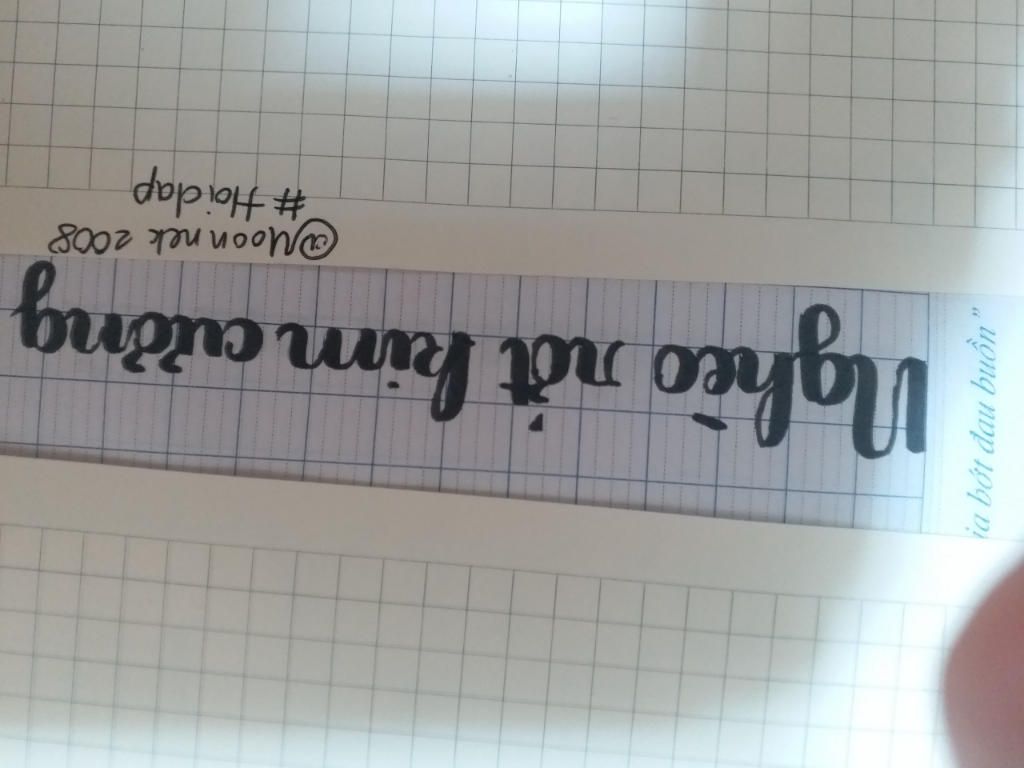 Nghèo rớt kim cương
@Moon nek 2008
# Hoidap
ia bớt đau buồn”